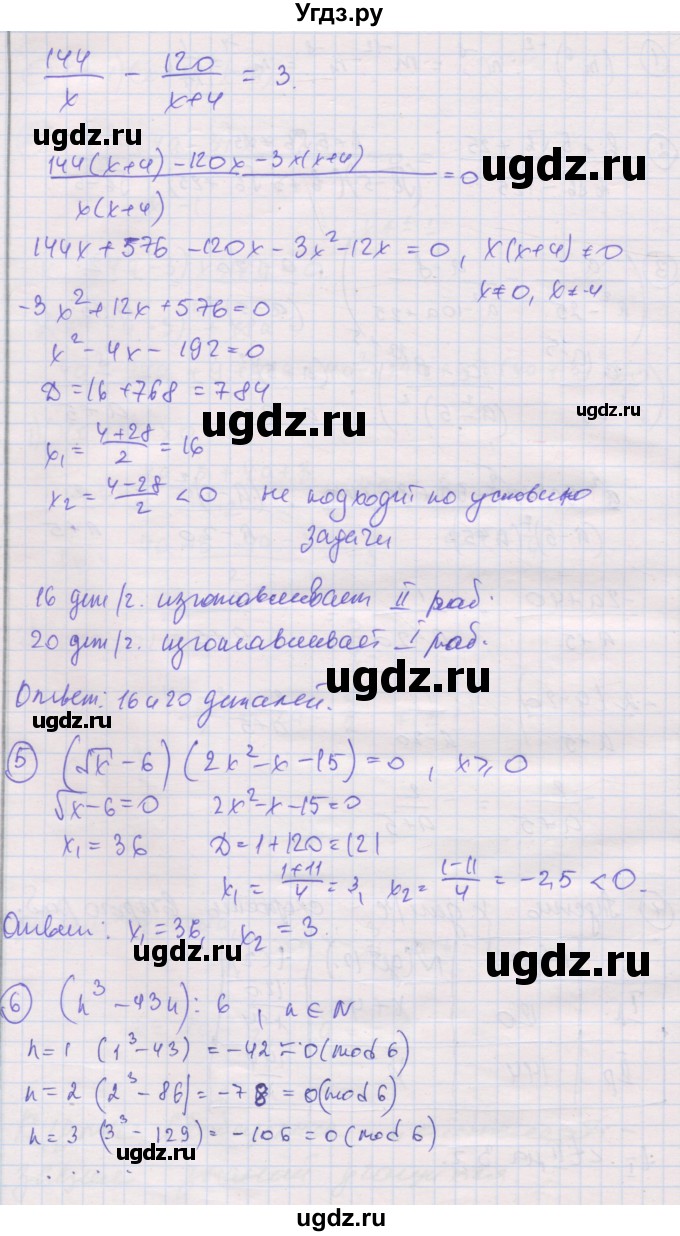 Угдз.ру
144/x - 120/(x+4) = 3.
ugdz.ru
ugdz.ru
(144(x+4) - 120x - 3x(x+4))/(x(x+4)) = 0
144x + 576 - 120x - 3x² - 12x = 0, x(x+4) ≠ 0
x ≠ 0, x ≠ -4
-3x² + 12x + 576 = 0
x² - 4x - 192 = 0
D = 16 + 768 = 784
ugdz.ru
ugdz.ru
x₁ = (4+28)/2 = 16
x₂ = (4-28)/2 < 0 не подходит по условию
задачи
16 дет/ч. изготавливает II раб.
20 дет/ч. изготавливает I раб.
ugdz.ru
Ответ: 16 и 20 деталей.
ugdz.ru
5 (√x - 6)(2x² - x - 15) = 0, x ⩾ 0
√x - 6 = 0 2x² - x - 15 = 0
x₁ = 36 D = 1 + 120 = 121
x₁ = (1+11)/4 = 3, x₂ = (1-11)/4 = -2,5 < 0.
ugdz.ru
Ответ: x₁ = 36, x₂ = 3.
ugdz.ru
6 (n³ - 43n) : 6, n ∈ N
n = 1 (1³ - 43) = -42 = 0 (mod 6)
n = 2 (2³ - 86) = -78 = 0 (mod 6)
n = 3 (3³ - 129) = -106 = 0 (mod 6)
ugdz.ru
. . . . .
ugdz.ru
ugdz.ru